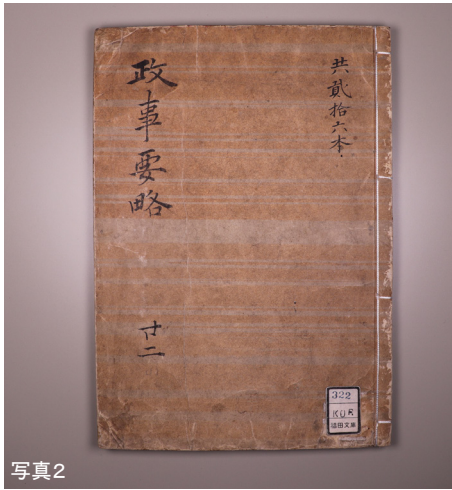 共貮拾六本
政事要略
廿二
322
KUR
写真2